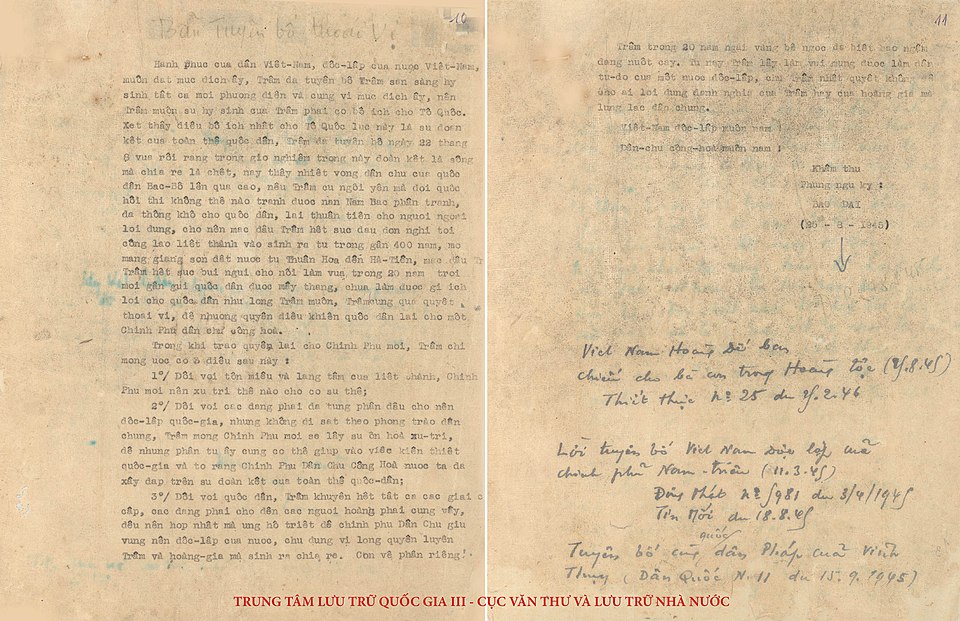 10
Bản Tuyên bố thoái vị
Hanh phuc cua dân Viêt-Nam, đôc-lâp cua nuoc Viêt-Nam,
muôn dat muc dich ây, Trâm da tuyên bô Trâm san sàng hy
sinh tât ca moi phuong diên và cung vi muc dich ây, nên
Trâm muôn su hy sinh cua Trâm phai co bô ich cho Tô Quôc.
Xet thây diêu bô ich nhât cho Tô Quôc luc này là su doan
kêt cua toàn thê quôc dân, Trâm da tuyên bô ngày 22 thang
8 vua rôi rang trong gio nghiêm trong này doàn kêt là sông
mà chia re là chêt, nay thây nhiêt vong dân chu cua quôc
dân Bac-Bô lên qua cao, nêu Trâm cu ngôi yên mà doi quôc
hôi thi không thê nào tranh duoc nan Nam Bac phân tranh,
da thông khô cho quôc dân, lai thuân tiên cho nguoi ngoai
loi dung, cho nên mac dâu Trâm hêt suc dau don nghi toi
công lao liêt thành vào sinh ra tu trong gân 400 nam, mo
mang giang son dât nuoc tu Thuân Hoa dên Hà-Tiên, mac dâu Tr
Trâm hêt suc bui ngui cho nôi làm vua trong 20 nam troi
moi gân gui quôc dân duoc mây thang, chua làm duoc gi ich
loi cho quôc dân nhu long Trâm muôn, Trâmcung qua quyêt
thoai vi, dê nhuong quyên diêu khiên quôc dân lai cho môt
Chinh Phu dân chu công hoà.
Trong khi trao quyên lai cho Chinh Phu moi, Trâm chi
mong uoc co 3 diêu sau này :
1º/ Dôi voi tôn miêu và lang tâm cua liêt thành, Chinh
Phu moi nên xu tri thê nào cho co su thê;
2º/ Dôi voi cac dang phai da tung phân dâu cho nên
dôc-lâp quôc-gia, nhung không di sat theo phong trào dân
chung, Trâm mong Chinh Phu moi se lây su ôn hoà xu-tri,
dê nhung phân tu ây cung co thê giup vào viêc kiên thiêt
quôc-gia và to rang Chinh Phu Dân Chu Công Hoà nuoc ta da
xây dap trên su doàn kêt cua toàn thê quôc-dân;
3º/ Dôi voi quôc dân, Trâm khuyên hêt tât ca cac giai c
câp, cac dang phai cho dên cac nguoi hoàng phai cung vây,
dêu nên hop nhât mà ung hô triêt dê chinh phu Dân Chu giu
vung nên dôc-lâp cua nuoc, chu dung vi long quyên luyên
Trâm và hoàng-gia mà sinh ra chia re. Con vê phân riêng
11
Trâm trong 20 nam ngai vàng bê ngoc da biêt bao ngâm
dang nuôt cay. Tu nay Trâm lây làm vui mung duoc làm dân
tu-do cua môt nuoc dôc-lâp, chu Trâm nhât quyêt không dê
cho ai loi dung danh nghia cua Trâm hay cua hoàng gia mà
lung lac dân chung.
Viêt-Nam dôc-lâp muôn nam !
Dân-chu công-hoà muôn nam !
Khâm thu
Thung ngu ky :
BAO DAI
(25 - 8 - 1945)
Việt Nam Hoàng Đế ban
chiếu cho bà con trong Hoàng tộc (25.8.45)
Thiết thực Nº 25 du 25.2.46
Lời tuyên bố Việt Nam Độc lập của
chính phủ Nam-triều (11.3.45)
Đông Phát Nº 5981 du 3/4/1945
Tin Mới du 18.8.45
quốc
Tuyên bố cùng dân Pháp của Vĩnh
Thụy (Dân Quốc N. 11 du 15.9.1945)
TRUNG TÂM LƯU TRỮ QUỐC GIA III - CỤC VĂN THƯ VÀ LƯU TRỮ NHÀ NƯỚC